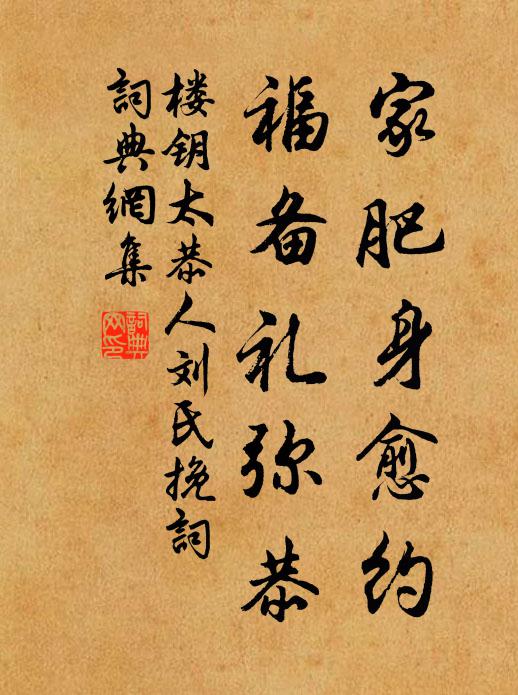 家肥身愈约
福备礼弥恭
楼钥太恭人刘氏挽词
词典網集
詞典
网印